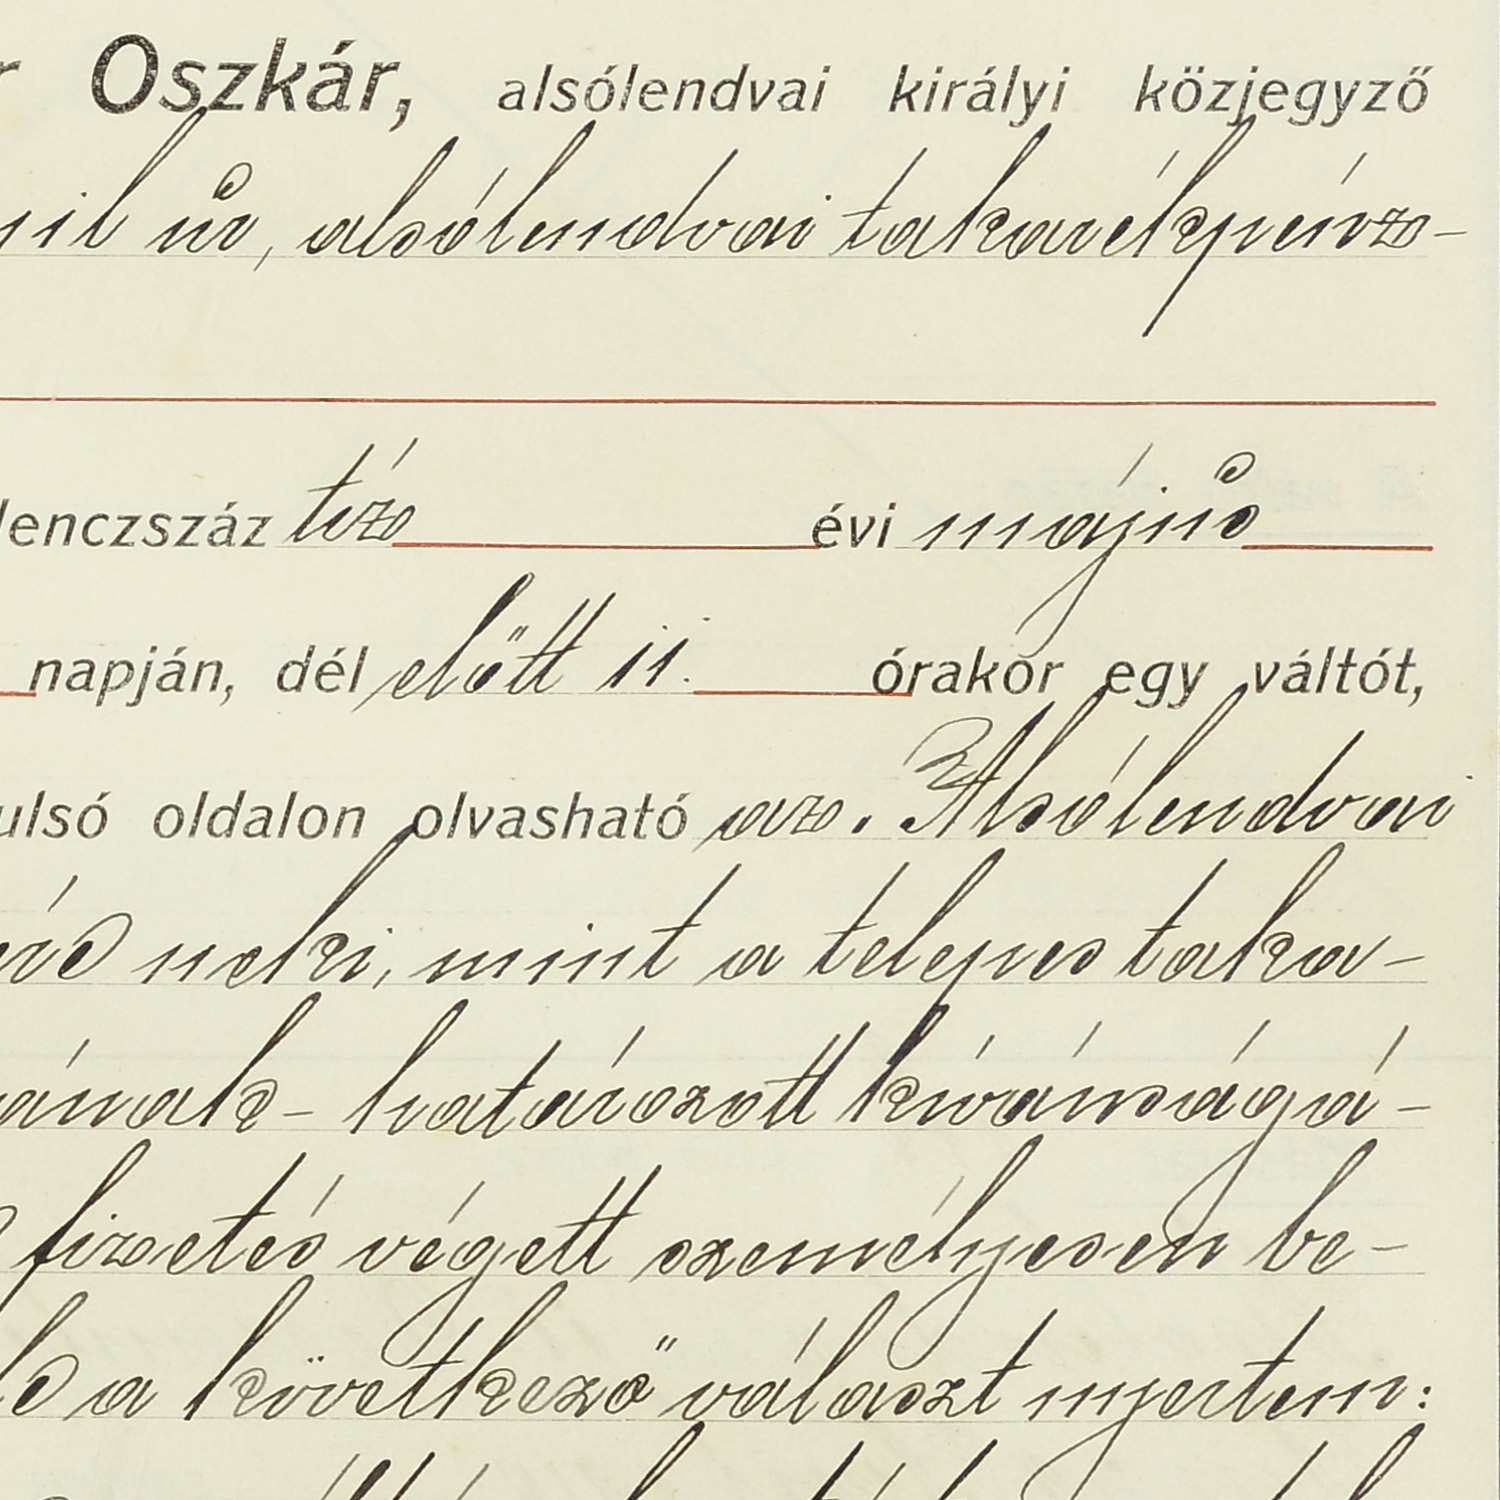 r Oszkár, alsólendvai királyi közjegyző
úr, alsólendvai takarékpénz-
lenczszáz tíz évi május
napján, dél előtt 11. órakor egy váltót,
ulsó oldalon olvasható az. Alsólendvai
neki, mint a telepes taka-
ának - határozott kívánságá-
fizetés végett személyesen be-
a következő választ nyertem: